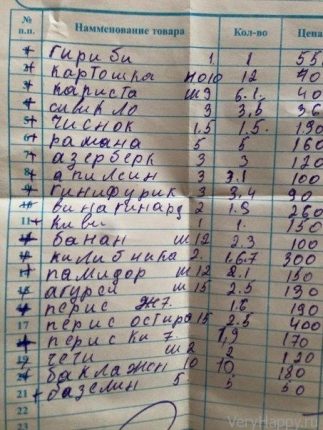 № п.п. Наименование товара Кол-во Цена
гириби 1 1 55
2 картошка 1010 12 40
3 кариста ш9 6.1. 40
4 сивикло 3 3,5 36
5 чиснок 1.5 1.5. 190
6 рамана 5 5 160
7 азерберк 3 3 120
8 апилсин 3 3.1 100
9 гинифурик 3 3,4 90
10 винагинард 2 1.9 260
11 киви 1 1. 150
банан ш12 2.3 100
килибника 2. 1.6.7 300
памидор ш12 2.1 150
агуреи ш15 2.5 130
перис ж7. 1.6 190
17 перис остира 15 2.5 400
перис ки 7. 1,9 170
19 чети ш2 2 120
баклажен 10 10 180
21 базелин 5. 5 50
22
23
VeryHappy.ru